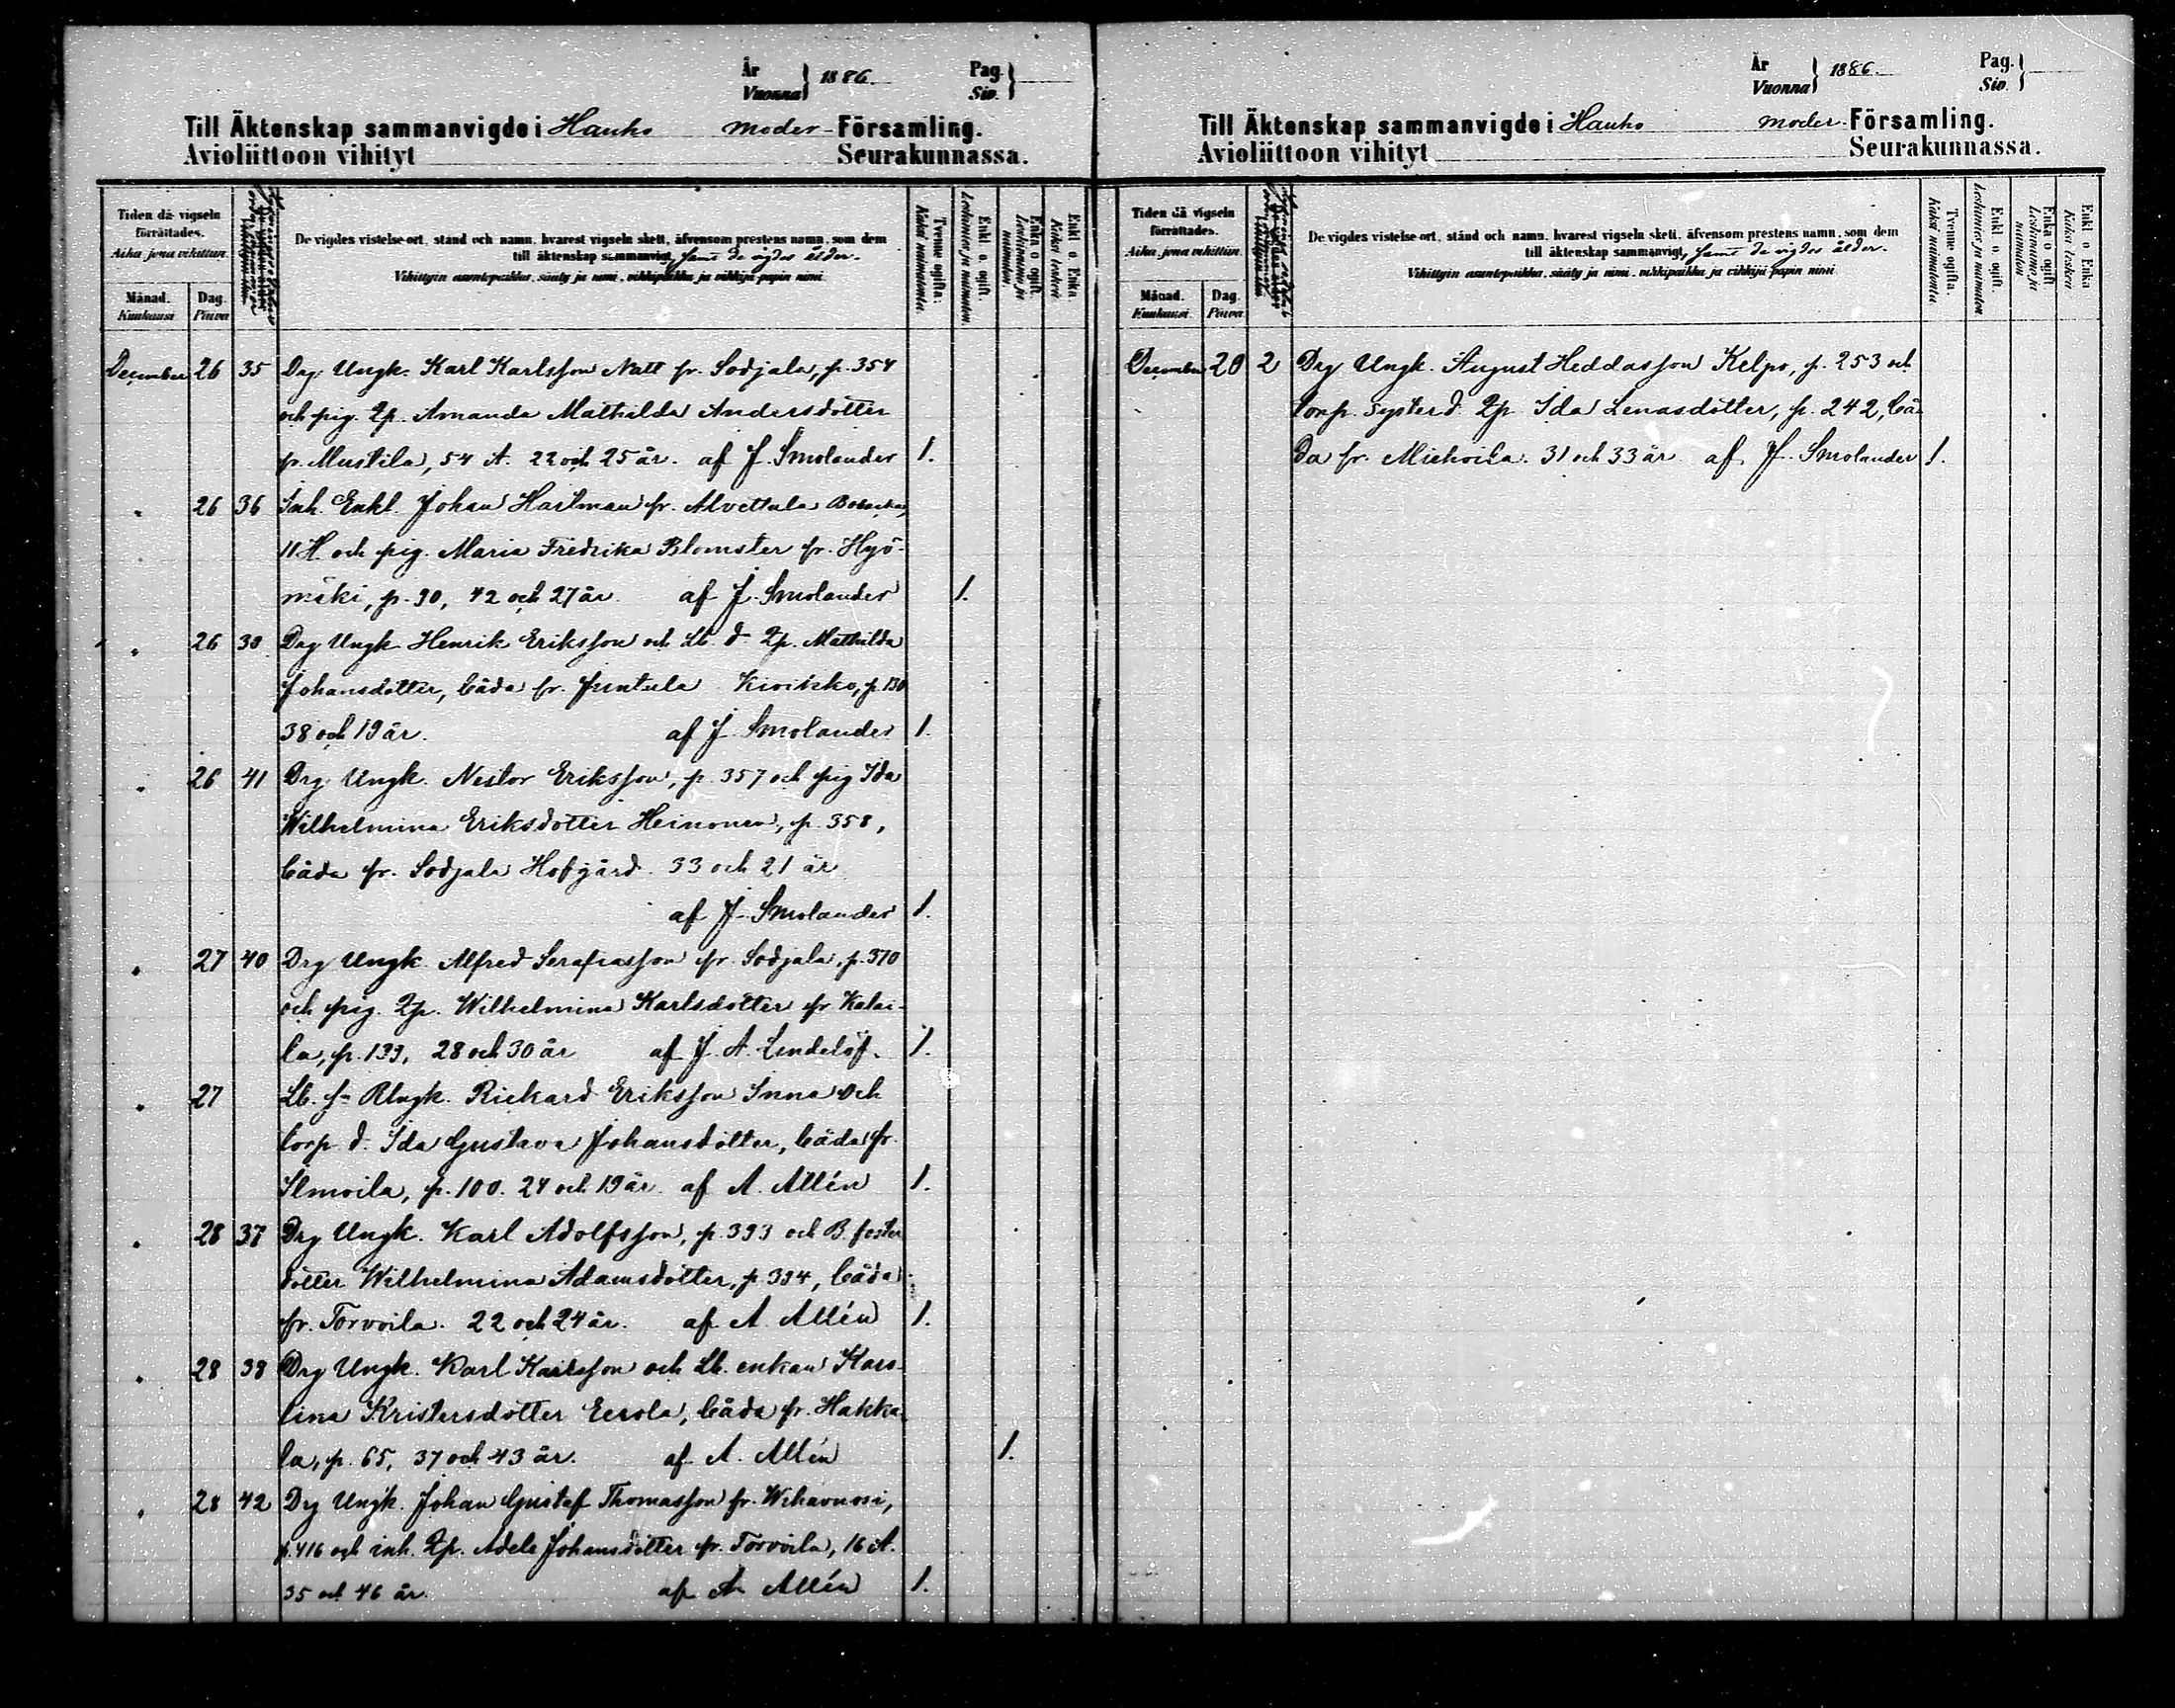 År
Vuonna } 1886. Pag.
Siv. }
Till Äktenskap sammanvigde i Hauho moder-Församling.
Avioliittoon vihityt Seurakunnassa.
Tiden då vigseln förrättades.
Aika jona vihittiin.
Månad. Kuukausi. Dag. Päivä
De vigdes vistelse-ort, stånd och namn, hvarest vigseln skett, äfvensom prestens namn, som dem
till äktenskap sammanvigt, samt de vigdes ålder.
Vihittyin asuntopaikka, sääty ja nimi, vihkipaikka ja vihkijä papin nimi.
Tvenne ogifta. Kaksi naimatonta.
Enkl. o. ogift. Leskimies ja naimaton.
Enka o. ogift. Leskivaimo ja naimaton.
Enkl. o. Enka. Kaksi leskeä
December 26 35 Drg. Ungk. Karl Karlsson Natt fr. Sodjala, p. 354
och pig. Qp. Amanda Mathilda Andersdotter
fr. Mustila, 54 A. 22 och 25 år. af J. Smolander 1.
" 26 36 Inh. Enkl. Johan Hartman fr. Alvettula
11 H. och pig. Maria Fredrika Blomster fr. Hyö-
mäki, p. 30, 42 och 27 år af J. Smolander 1.
" 26 30 Drg Ungk Henrik Eriksson och Lb. d. Qp. Mathilda
Johansdotter, båda fr. Juntula Kivikko, p. 130
38 och 19 år. af J. Smolander 1.
" 26 41 Drg Ungk. Nestor Eriksson, p. 357 och pig Ida
Wilhelmina Eriksdotter Heinonen, p. 358,
båda fr. Sodjala Hofgård. 33 och 21 år
af J. Smolander 1.
" 27 40 Drg Ungk. Alfred Serafiasson fr. Sodjala, p. 370
och pig. Qp. Wilhelmina Karlsdotter fr Kalai-
la, p. 133, 28 och 30 år af J. A. Lindelöf. 1.
" 27 Lb. s. Ungk. Rickard Eriksson Inna och
torp. d. Ida Gustava Johansdotter, båda fr.
Ilmoila, p. 100. 24 och 19 år. af A. Allén 1.
" 28 37 Drg Ungk. Karl Adolfsson, p. 393 och B. foster
dotter Wilhelmina Adamsdotter, p. 394, båda
fr. Torvoila. 22 och 24 år. af A. Allén 1.
" 28 38 Drg Ungk. Karl Karlsson och Lb. enkan Karo-
lina Kristersdotter Eerola, båda fr. Hakka-
la, p. 65, 37 och 43 år. af A. Allén 1.
" 28 42 Drg Ungk. Johan Gustaf Thomasson fr. Wihavuosi,
p. 416 och inh. Qp. Adele Johansdotter fr. Torvoila, 16 A.
35 och 46 år. af A. Allén 1.
År
Vuonna } 1886. Pag.
Siv. }
Till Äktenskap sammanvigde i Hauho moder-Församling.
Avioliittoon vihityt Seurakunnassa.
Tiden då vigseln förrättades.
Aika jona vihittiin.
Månad. Kuukausi. Dag. Päivä
De vigdes vistelse-ort, stånd och namn, hvarest vigseln skett, äfvensom prestens namn, som dem
till äktenskap sammanvigt, samt de vigdes ålder.
Vihittyin asuntopaikka, sääty ja nimi, vihkipaikka ja vihkijä papin nimi.
Tvenne ogifta. Kaksi naimatonta
Enkl. o. ogift. Leskimies ja naimaton
Enka o. ogift Leskivaimo ja naimaton
Enkl. o. Enka Kaksi leskeä
December 20 2 Drg Ungk. August Heddasson Kelpo, p. 253 och
torp. systerd. Qp Ida Lenasdotter, p. 242, bå-
da fr. Miehoila. 31 och 33 år af J. Smolander 1.